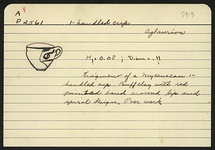 A
P 2561 1-handled cup
Aglaurion
H., 0.08 ; Diam. .11
Fragment of a Mycenaean 1-
handled cup. Buff clay with red
painted band around lip and
spiral design. Poor work